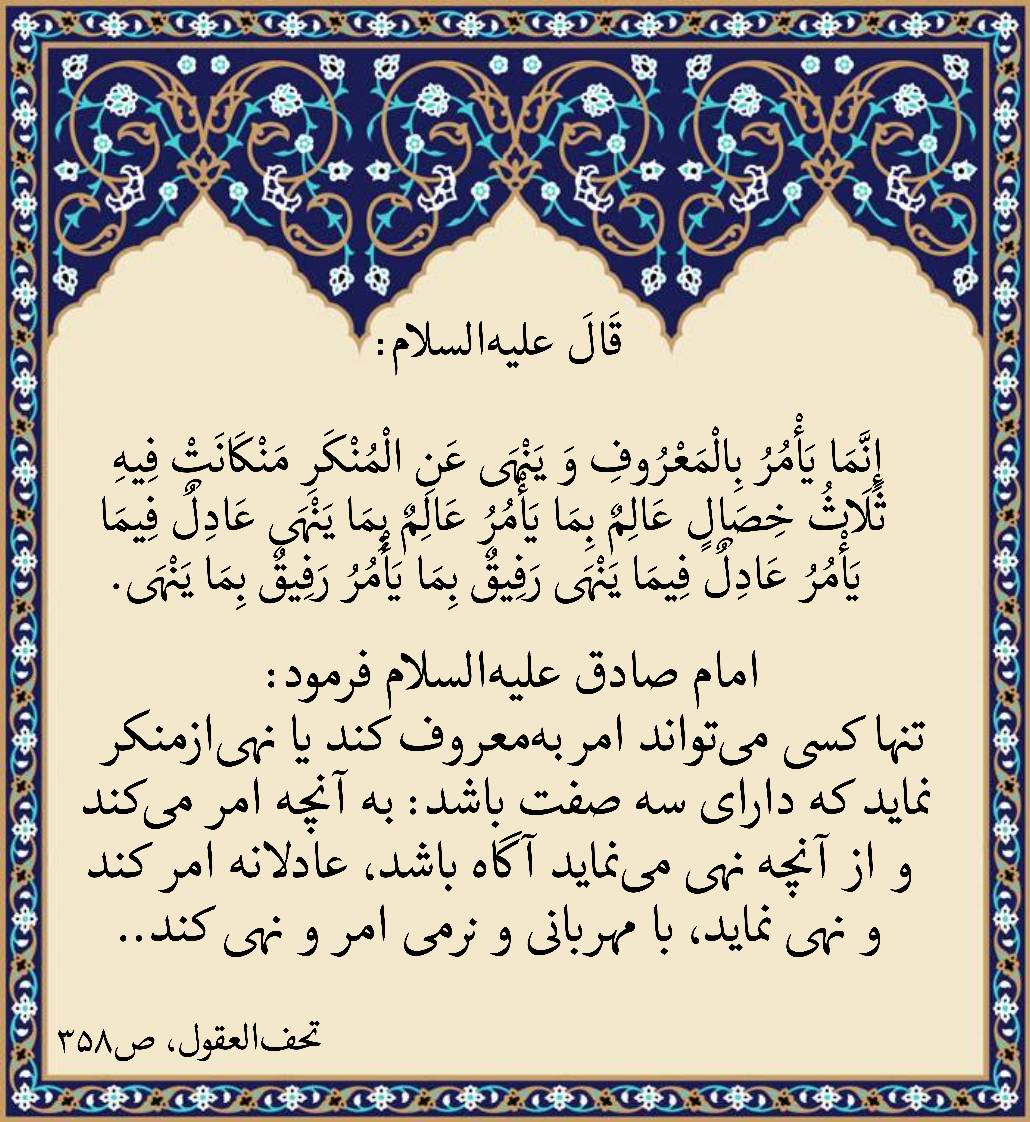 قَالَ علیه‌السلام:
إِنَّمَا يَأْمُرُ بِالْمَعْرُوفِ وَ يَنْهَى عَنِ الْمُنْكَرِ مَنْ‌كَانَتْ فِيهِ
ثَلَاثُ خِصَالٍ عَالِمٌ بِمَا يَأْمُرُ عَالِمٌ بِمَا يَنْهَى عَادِلٌ فِيمَا
يَأْمُرُ عَادِلٌ فِيمَا يَنْهَى رَفِيقٌ بِمَا يَأْمُرُ رَفِيقٌ بِمَا يَنْهَى.
امام صادق علیه‌السلام فرمود:
تنها کسی می‌تواند امر به‌معروف کند یا نهی‌ازمنکر
نماید که دارای سه صفت باشد: به آنچه امر می‌کند
و از آنچه نهی می‌نماید آگاه باشد، عادلانه امر کند
و نهی نماید، با مهربانی و نرمی امر و نهی کند..
تحف‌العقول، ص۳۵۸